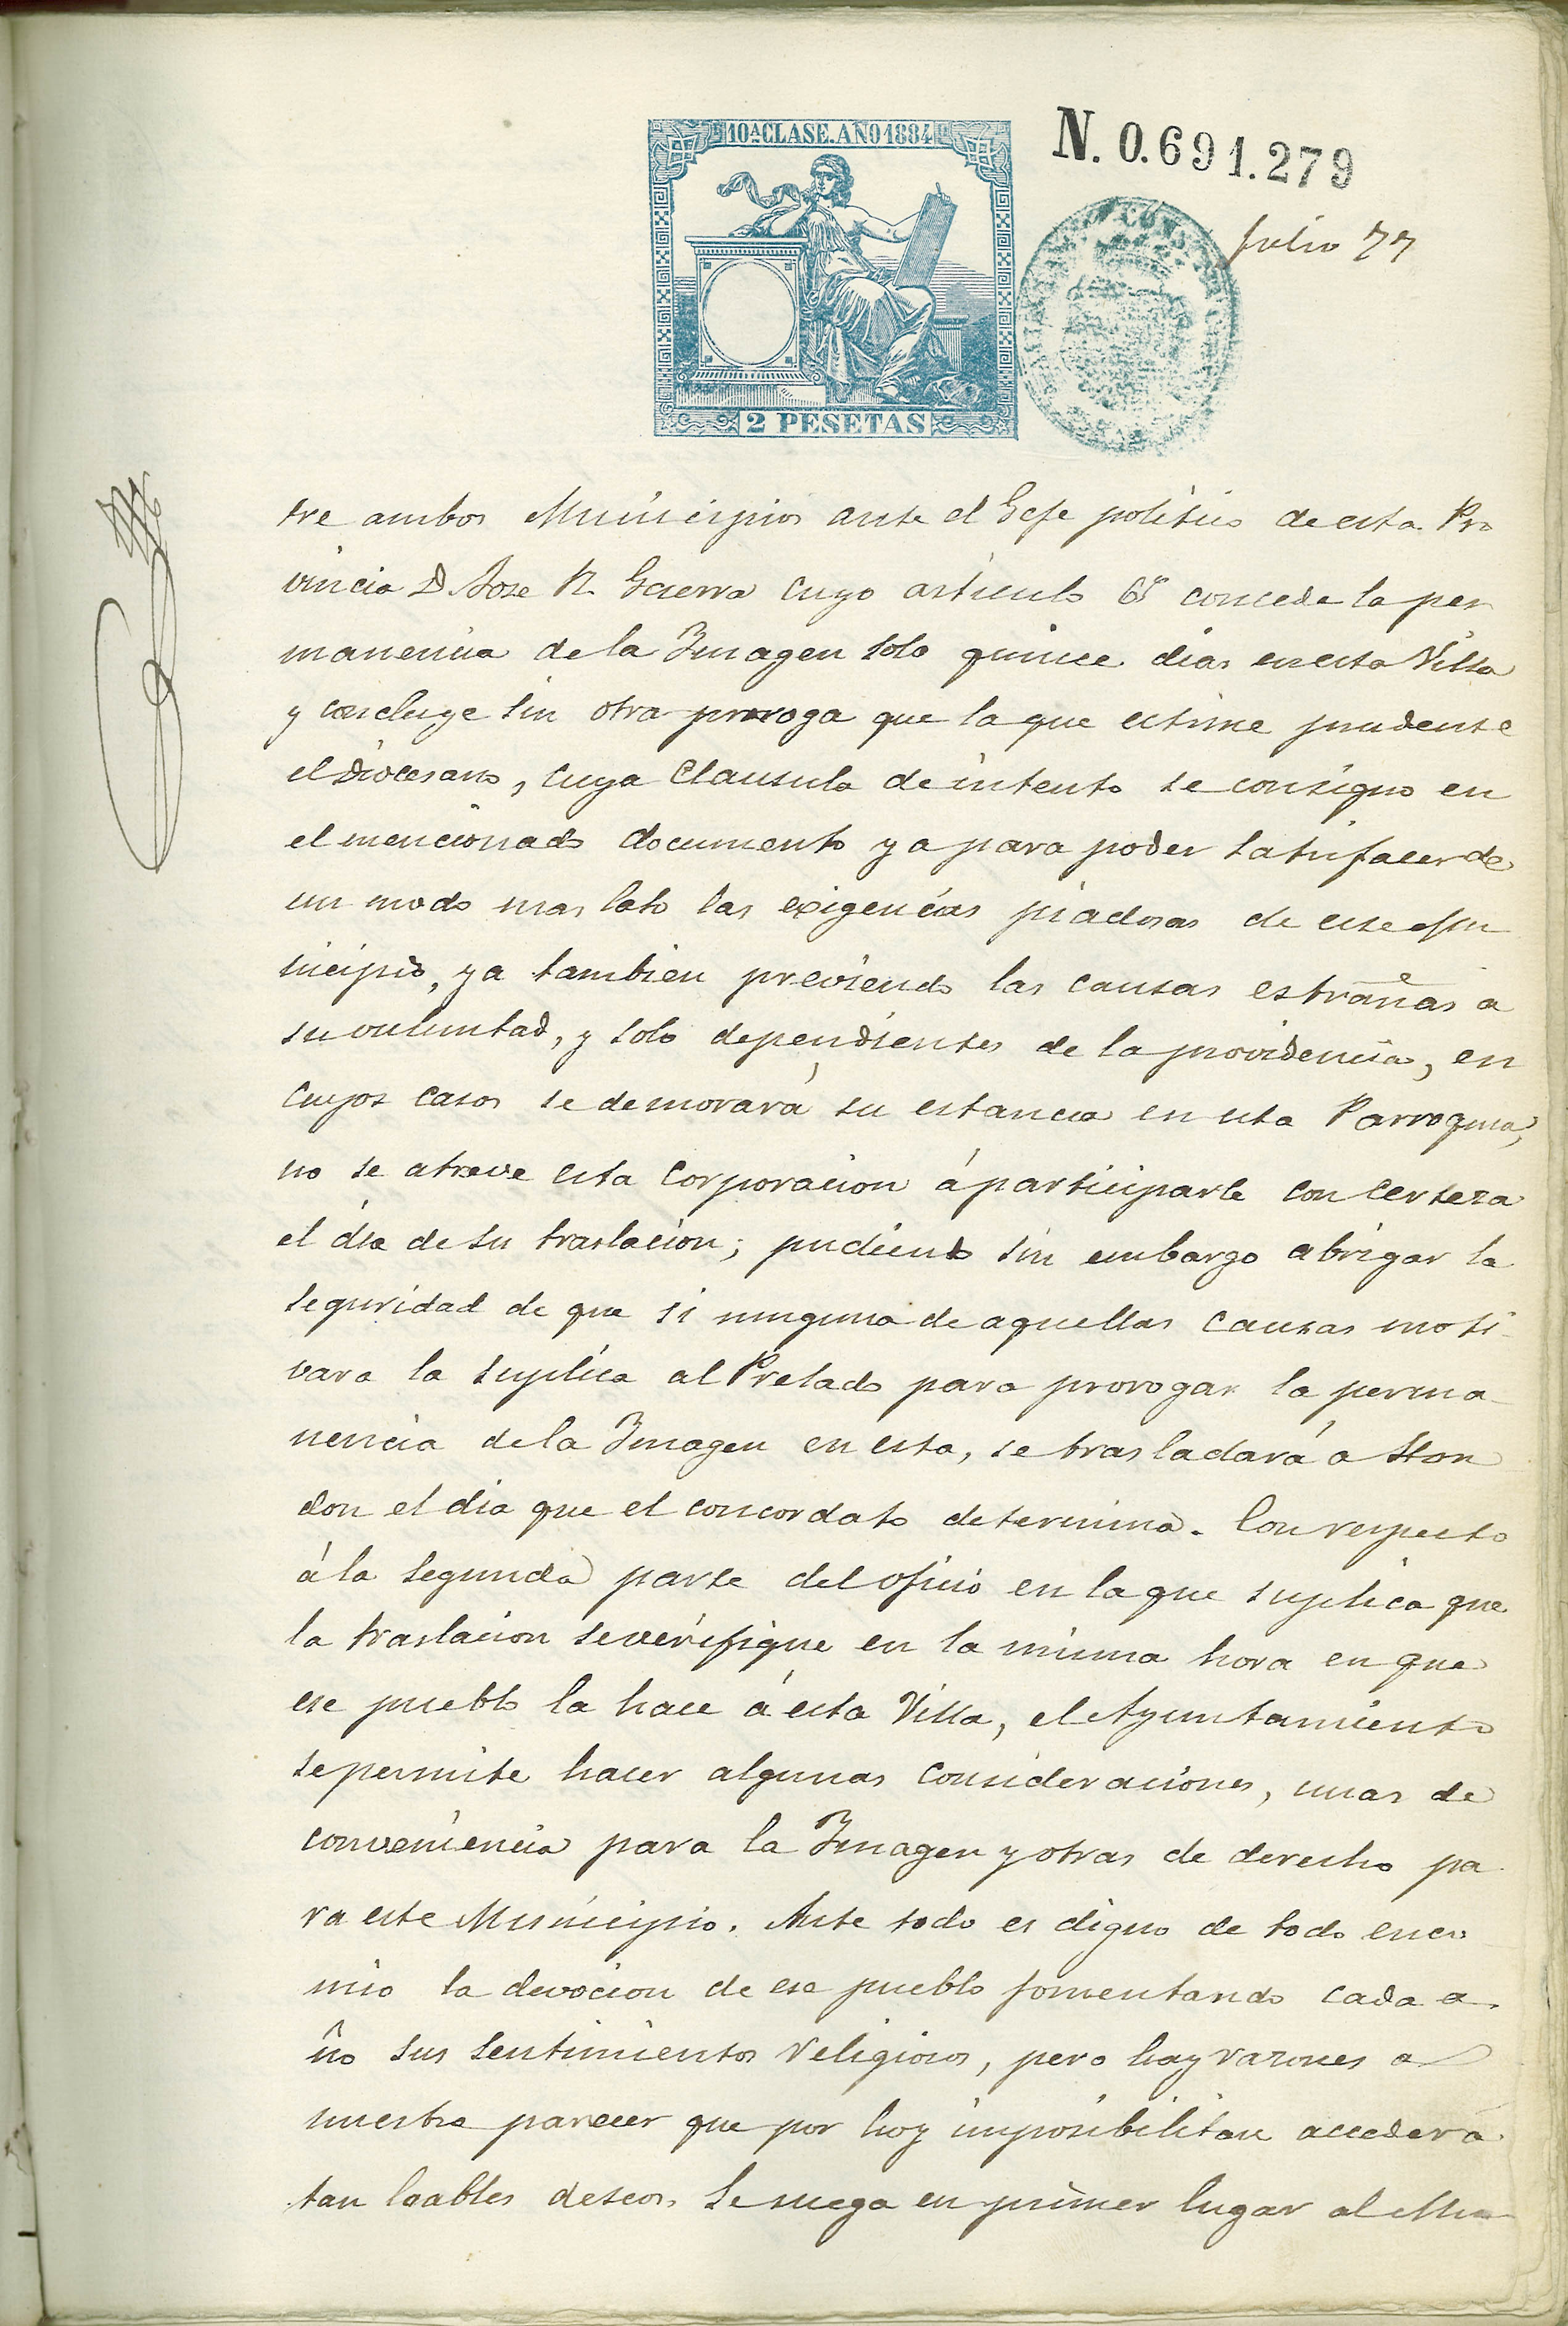 10ª CLASE. AÑO 1884
N. 0.691.279
Julio 77
2 PESETAS
tre ambos Municipios ante el Gefe politico de esta Pro
vincia D. Jose R. Guerra cuyo articulo 6º concede la per
manencia de la Imagen solo quince dias en esta Villa
y concluye sin otra proroga que la que estime prudente
el Diocesano, cuya clausula de intento se consigno en
el mencionado documento ya para poder satisfacer de
un modo mas lato las exigencias piadosas de ese Mu
nicipio, ya tambien previendo las causas estrañas a
su voluntad, y solo dependientes de la providencia, en
cuyos casos se demorará su estancia en esta Parroquia,
no se atreve esta Corporacion á participarle con certeza
el dia de su traslacion; pudiendo sin embargo abrigar la
seguridad de que si ninguna de aquellas causas moti-
vara la suplica al Prelado para prorogar la perma-
nencia de la Imagen en esta, se trasladará a Hon
don el dia que el concordato determina. Con respecto
á la segunda parte del oficio en la que suplica que
la traslacion se verifique en la misma hora en que
ese pueblo la hace á esta Villa, el Ayuntamiento
se permite hacer algunas consideraciones, unas de
conveniencia para la Imagen y otras de derecho pa-
ra este Municipio. Ante todo es digno de todo enco
mio la devocion de ese pueblo fomentando cada a-
ño sus sentimientos religiosos, pero hay razones a
nuestro parecer que por hoy imposibilitan acceder a
tan loables deseos. Se niega en primer lugar al Mu